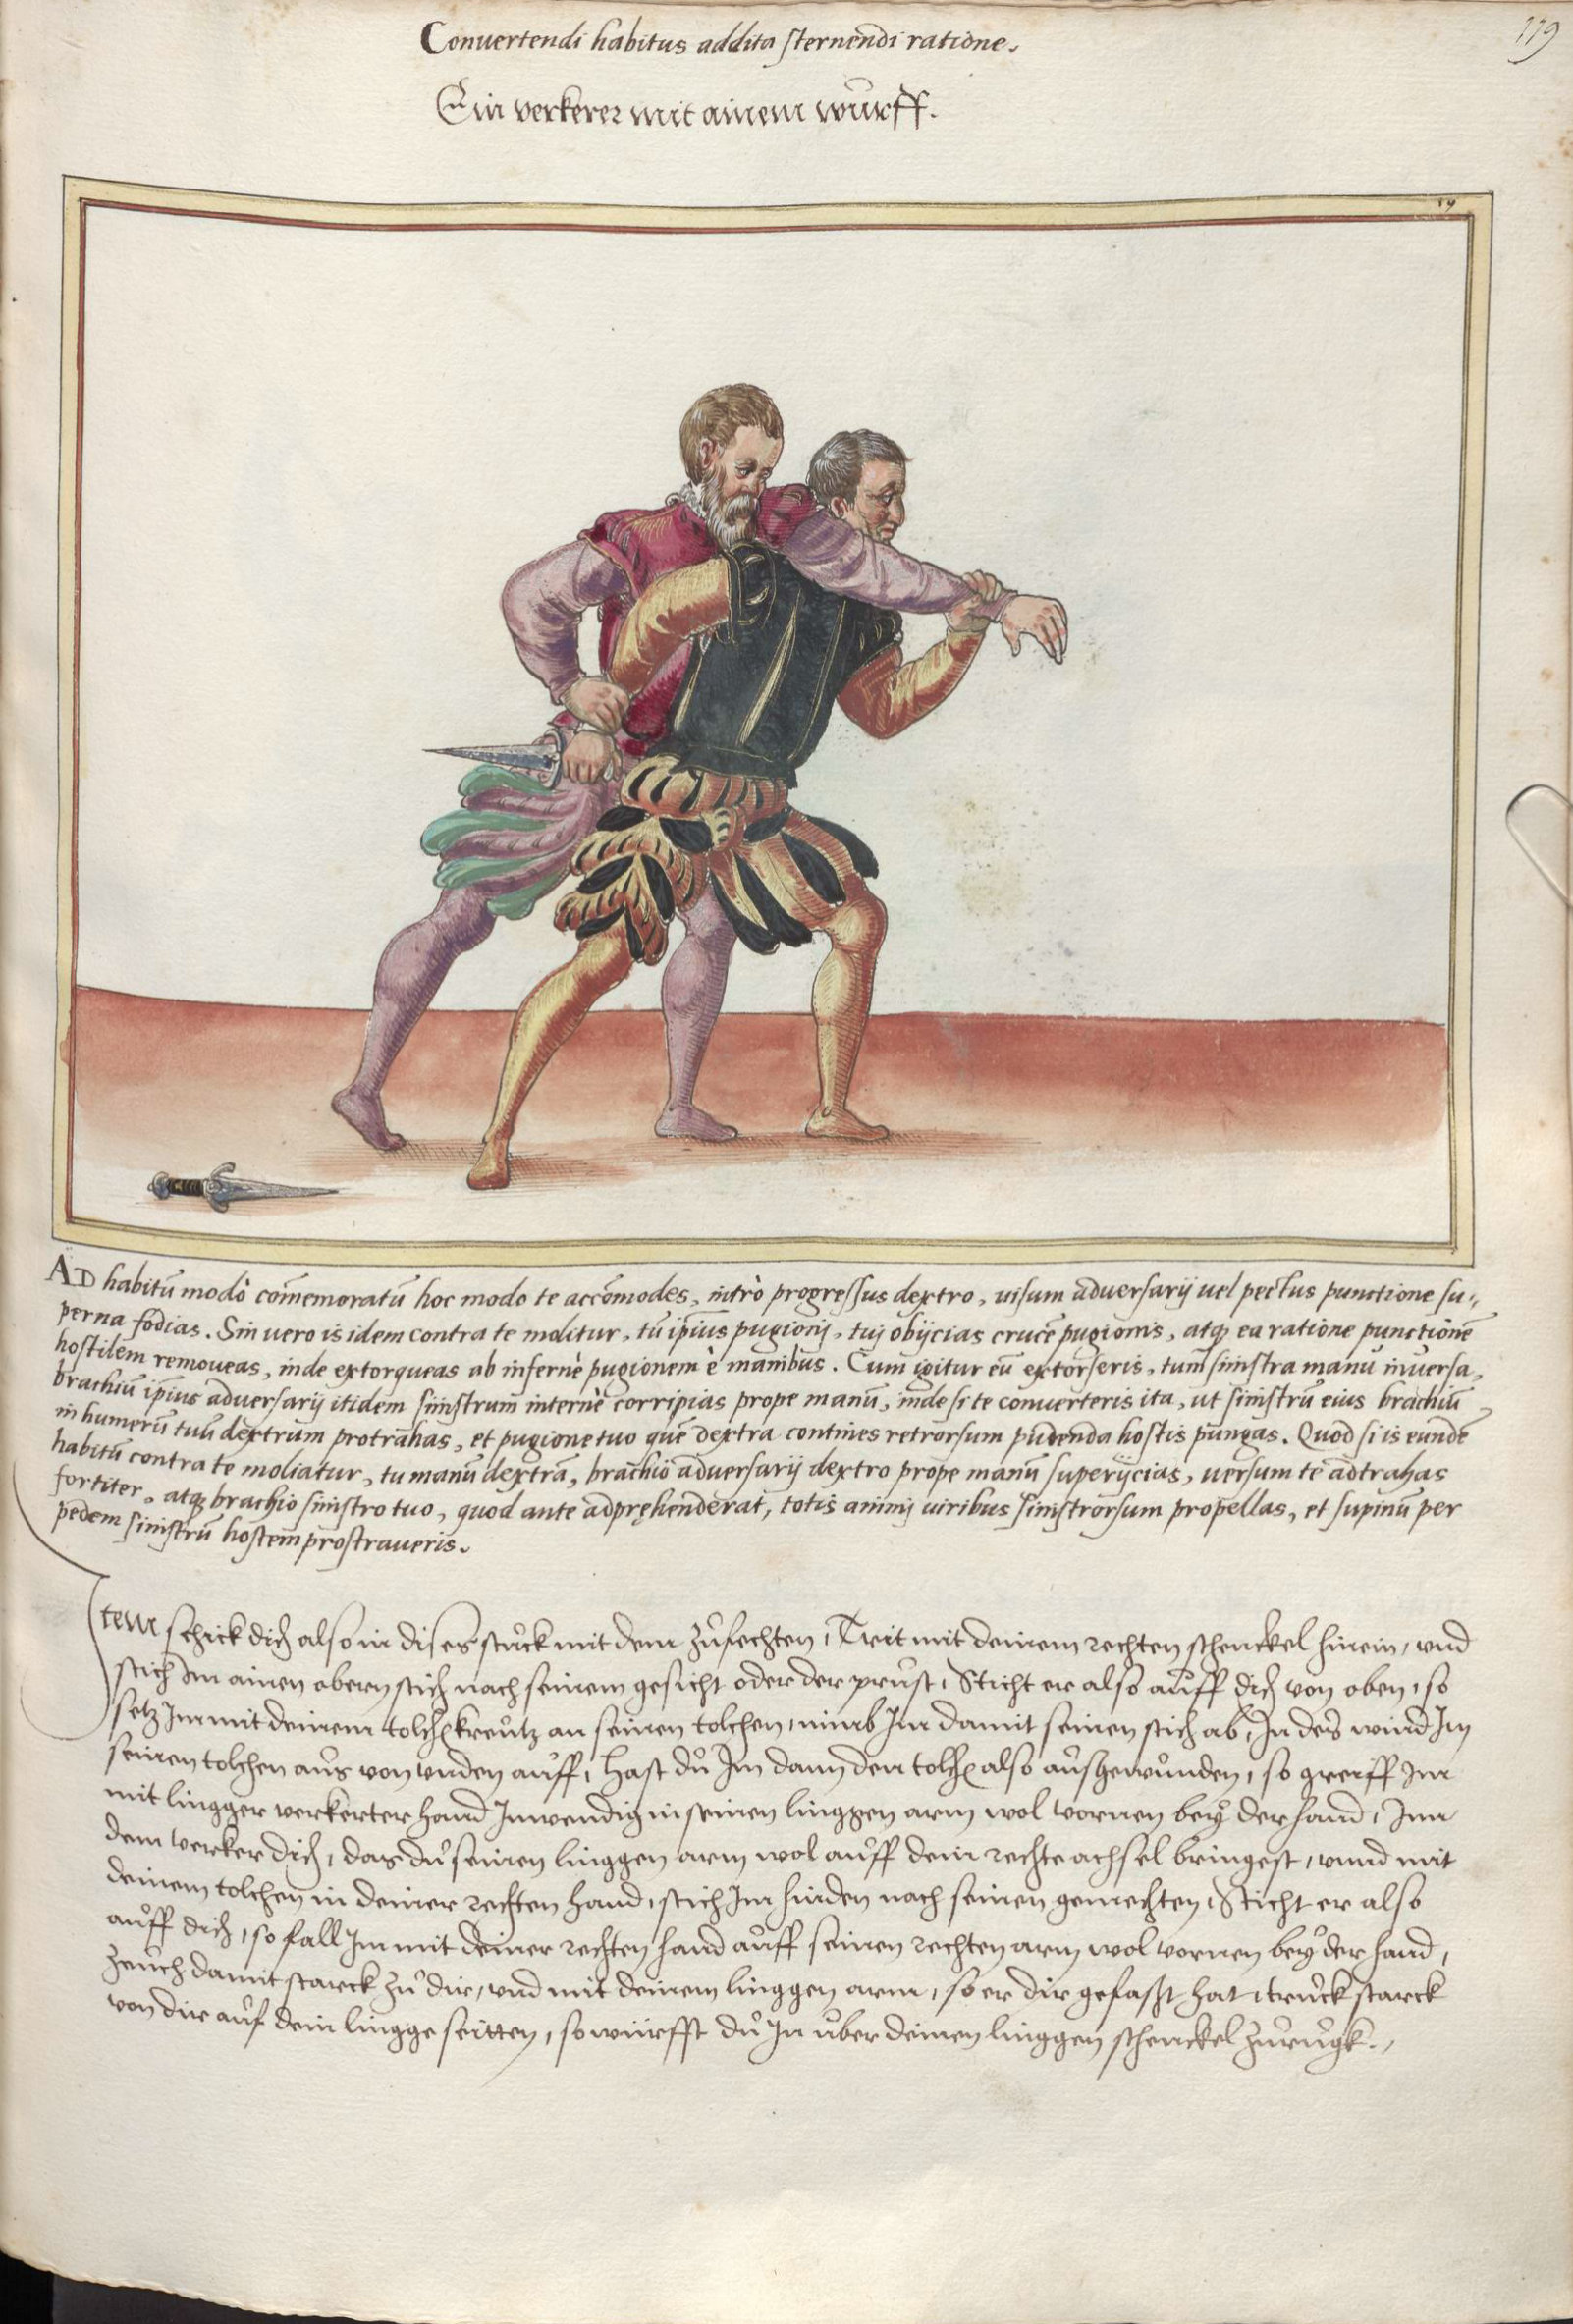 119
Conuertendi habitus addita sternendi ratione.
Ein verkerer mit ainem wurff.
19
AD habitū modò com̄emoratū hoc modo te accom̄odes, intrò progressus dextro, uisum aduersarij uel pectus punctione su-
perna fodias. Sin uero is idem contra te molitur, tū ipsius pugioni, tuj obijcias crucē pugionis, atq; ea ratione punctionē
hostilem remoueas, inde extorqueas ab infernè pugionem è manibus. Cum igitur eū extorseris, tum sinistra manu inuersa,
brachiū ipsius aduersarij itidem sinistrum internè corripias prope manū, inde si te conuerteris ita, ut sinistrū eius brachiū
in humerū tuū dextrum protrahas, et pugione tuo quē dextra contines retrorsum pudenda hostis pungas. Quod si is eundē
habitū contra te moliatur, tu manū dextrā, brachio aduersarij dextro prope manū superijcias, uersum te adtrahas
fortiter, atq; brachio sinistro tuo, quod ante adpręhenderat, totis animj uiribus sinistrorsum propellas, et supinū per
pedem sinistrū hostem prostraueris.
Item schick dich also in dises stuck mit dem zufechten, Trit mit deinem rechten schenckel hinein, vnd
stich Im ainen obern stich nach seinem gesicht oder der prust, Sticht er also auff dich von oben, so
setz Im mit deinem tolchen kreutz an seinen tolchen, nimb Im damit seinen stich ab, In des wind Im
seinen tolchen aus von vnden auff, hast du Im dann den tolchen also ausgewunden, so greiff Im
mit lingger verkerter hand Inwendig in seinen linggen arm wol vornen bey der hand, Inn
dem verker dich, das du seinen linggen arm wol auff dein rechte achsel bringest, vnnd mit
deinem tolchen in deiner rechten hand, stich Im hinden nach seinen gemechten, Sticht er also
auff dich, so fall Im mit deiner rechten hand auff seinen rechten arm wol vornen bey der hand,
zeuch damit starck zu dir, vnd mit deinem linggen arm, so er dir gefaszt hat, truck starck
von dir auf dein lingge seitten, so würffst du In uber deinen linggen schenckel zurugk.